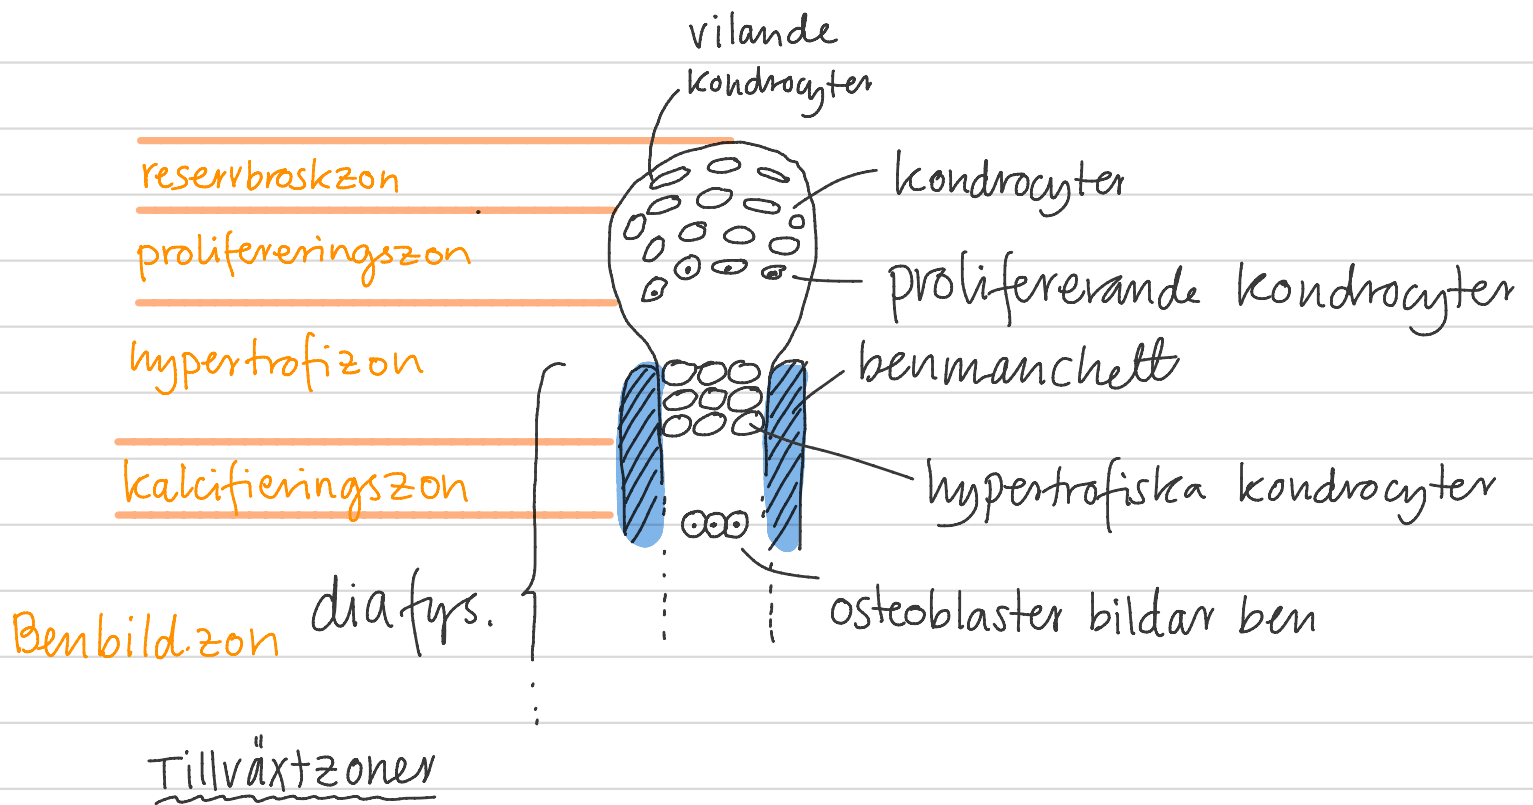 vilande
kondrocyter
reservbroskzon
kondrocyter
prolifereringszon
prolifererande kondrocyter
hypertrofizon
benmanchett
kalcifieringszon
hypertrofiska kondrocyter
diafys.
osteoblaster bildar ben
Benbild.zon
Tillväxtzoner